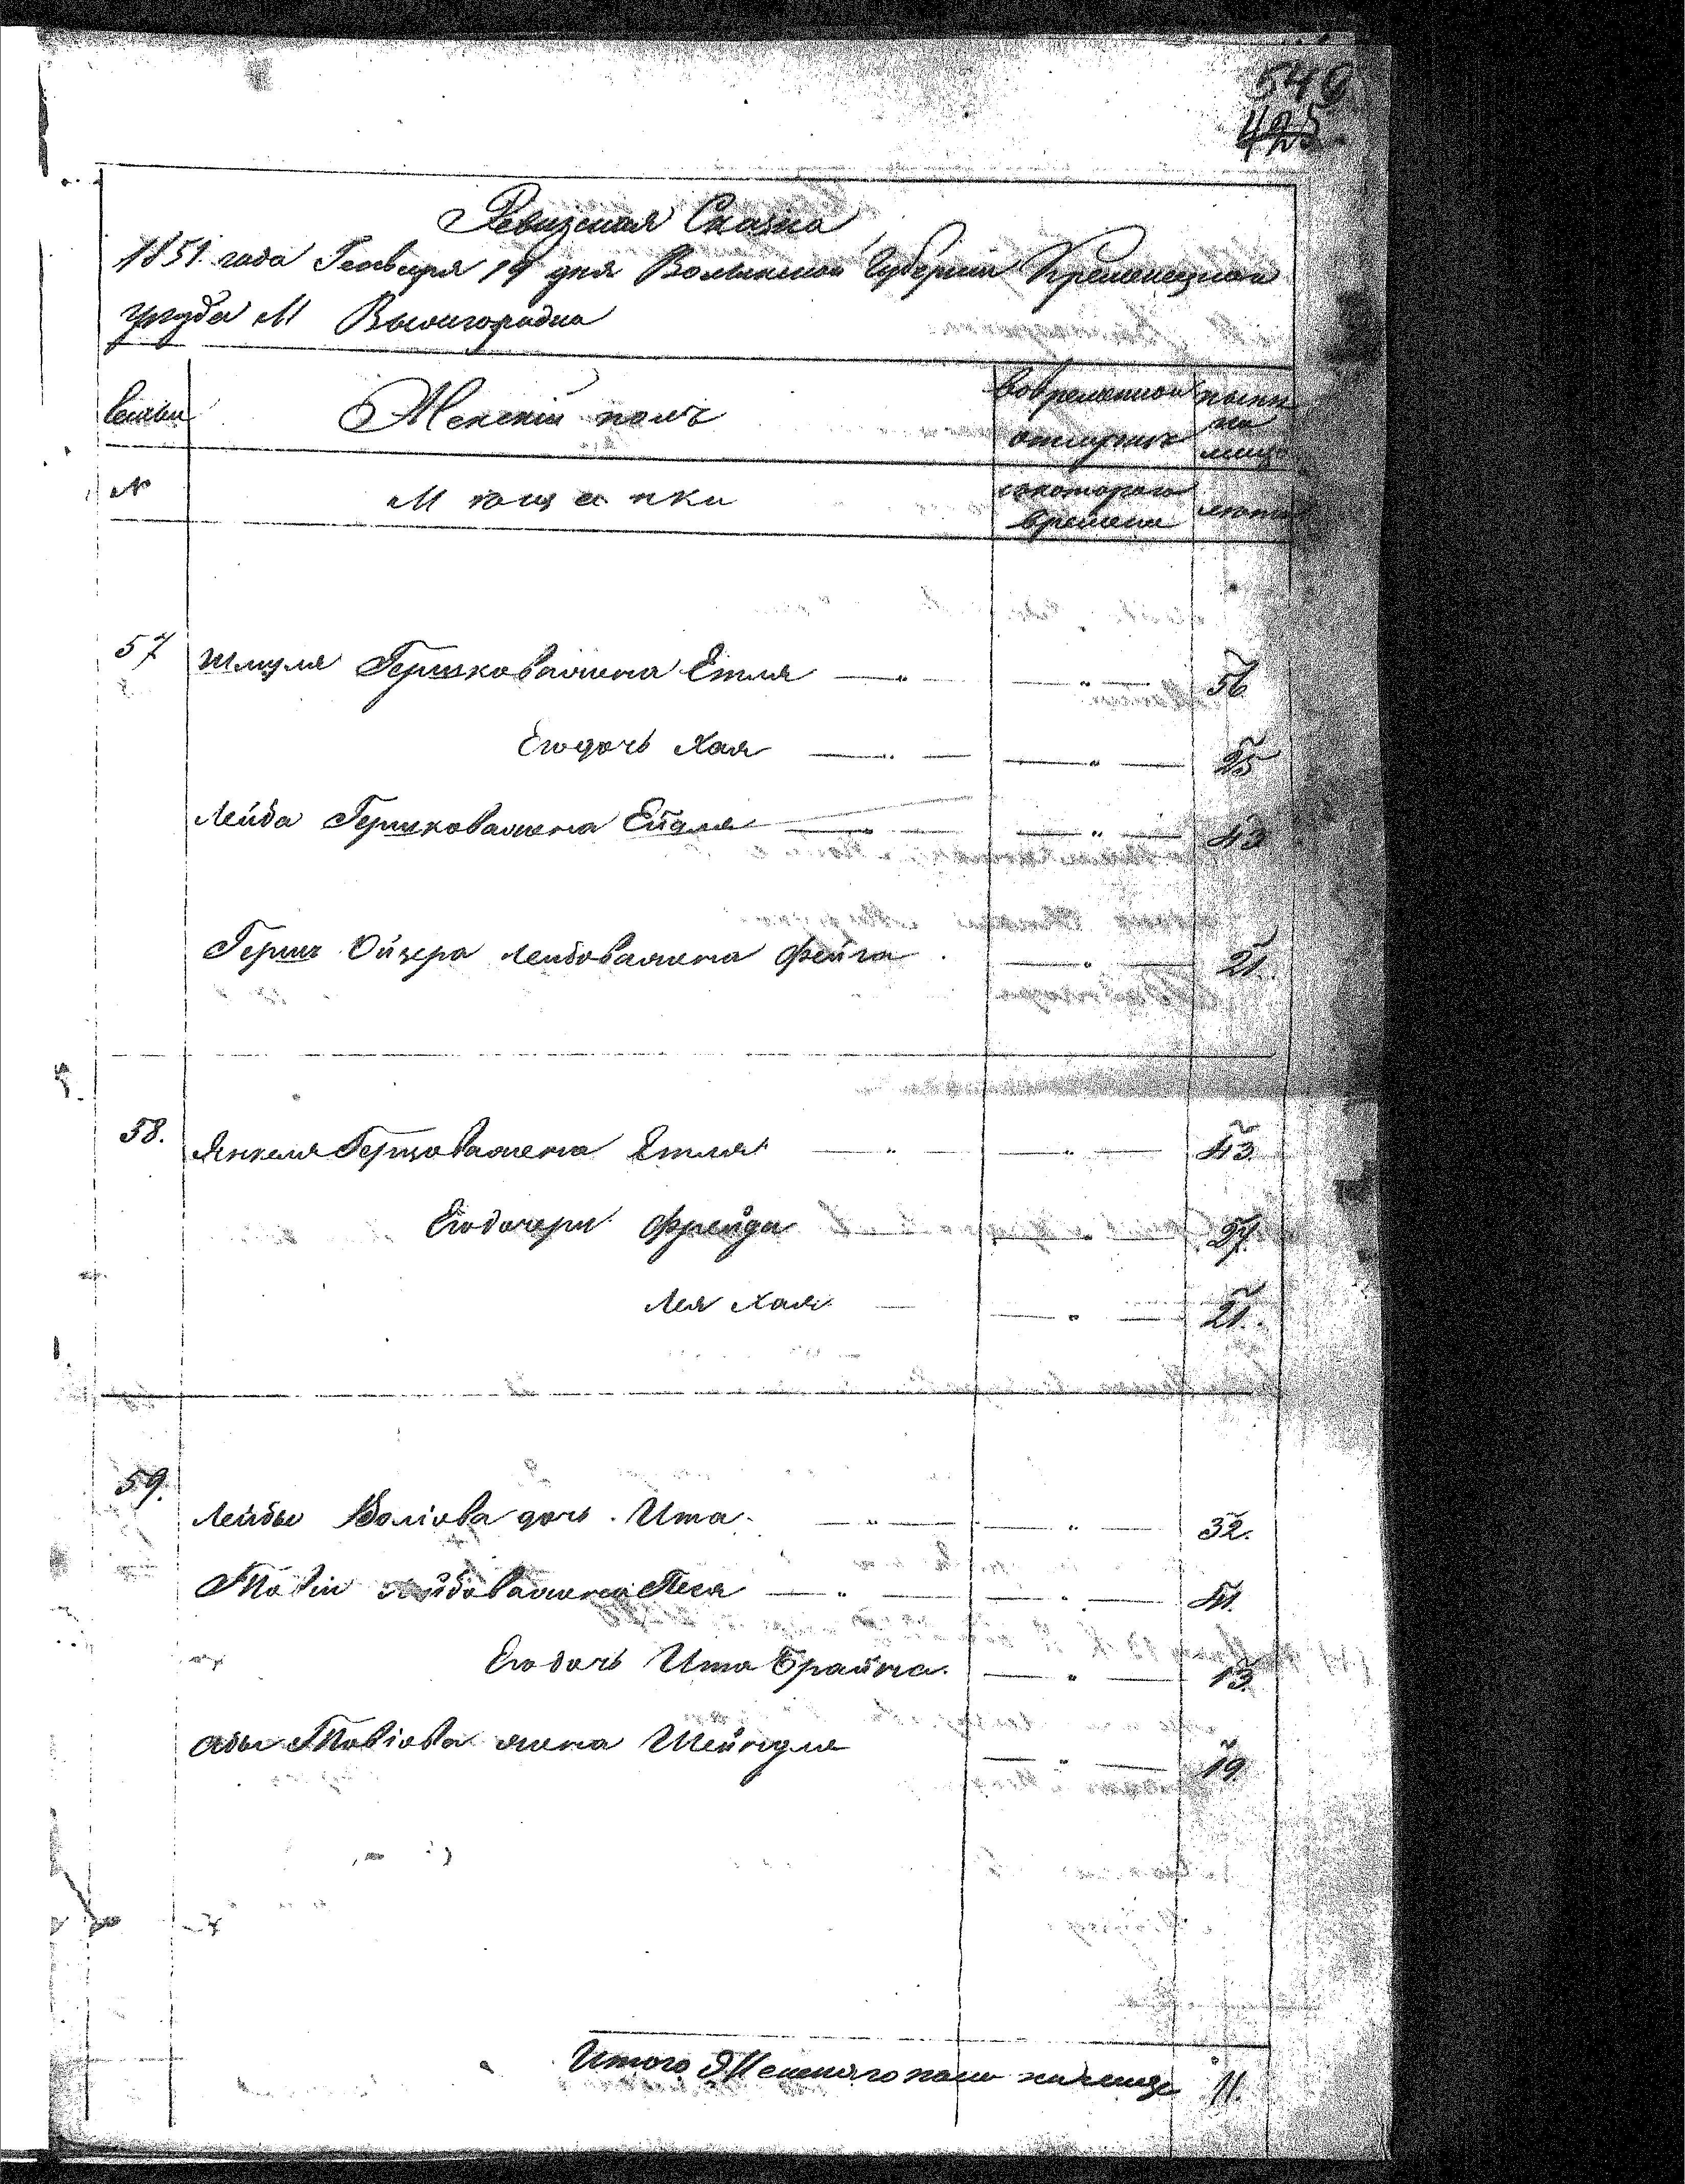 549
425
Ревизская Сказка
1851 года Генваря 19 дня Волынской Губернии Кременецкаго
уезда М Вышгородка
Семьи
Женскій полъ
Вовременной отлучкѣ
нынѣ на лицо
№
Мѣщанки
съкотораго времени
лѣта
57 Шмуля Гершкова жена Етля — " — — " — 56
Егодочь Хая — " — — " — 25
Лейба Гершкова жена Ейдля — " — — " — 43
Гершъ Ойзера Лейбова жена Фейга — " — 21.
58. Янкеля Герцова жена Етля — " — — " — 43.
Егодочери Фрейда — " — 27.
Лея Хая — — " — 21.
59. Лейбы Волiова дочь Ита — " — — " — 32.
Товiи Лейбова жена Песя — " — — " — 41.
Егодочь Ита Брайна — " — 13.
Абы Товiова жена Шейндля — " — 19.
Итого Женскаго пола на лицо 11.